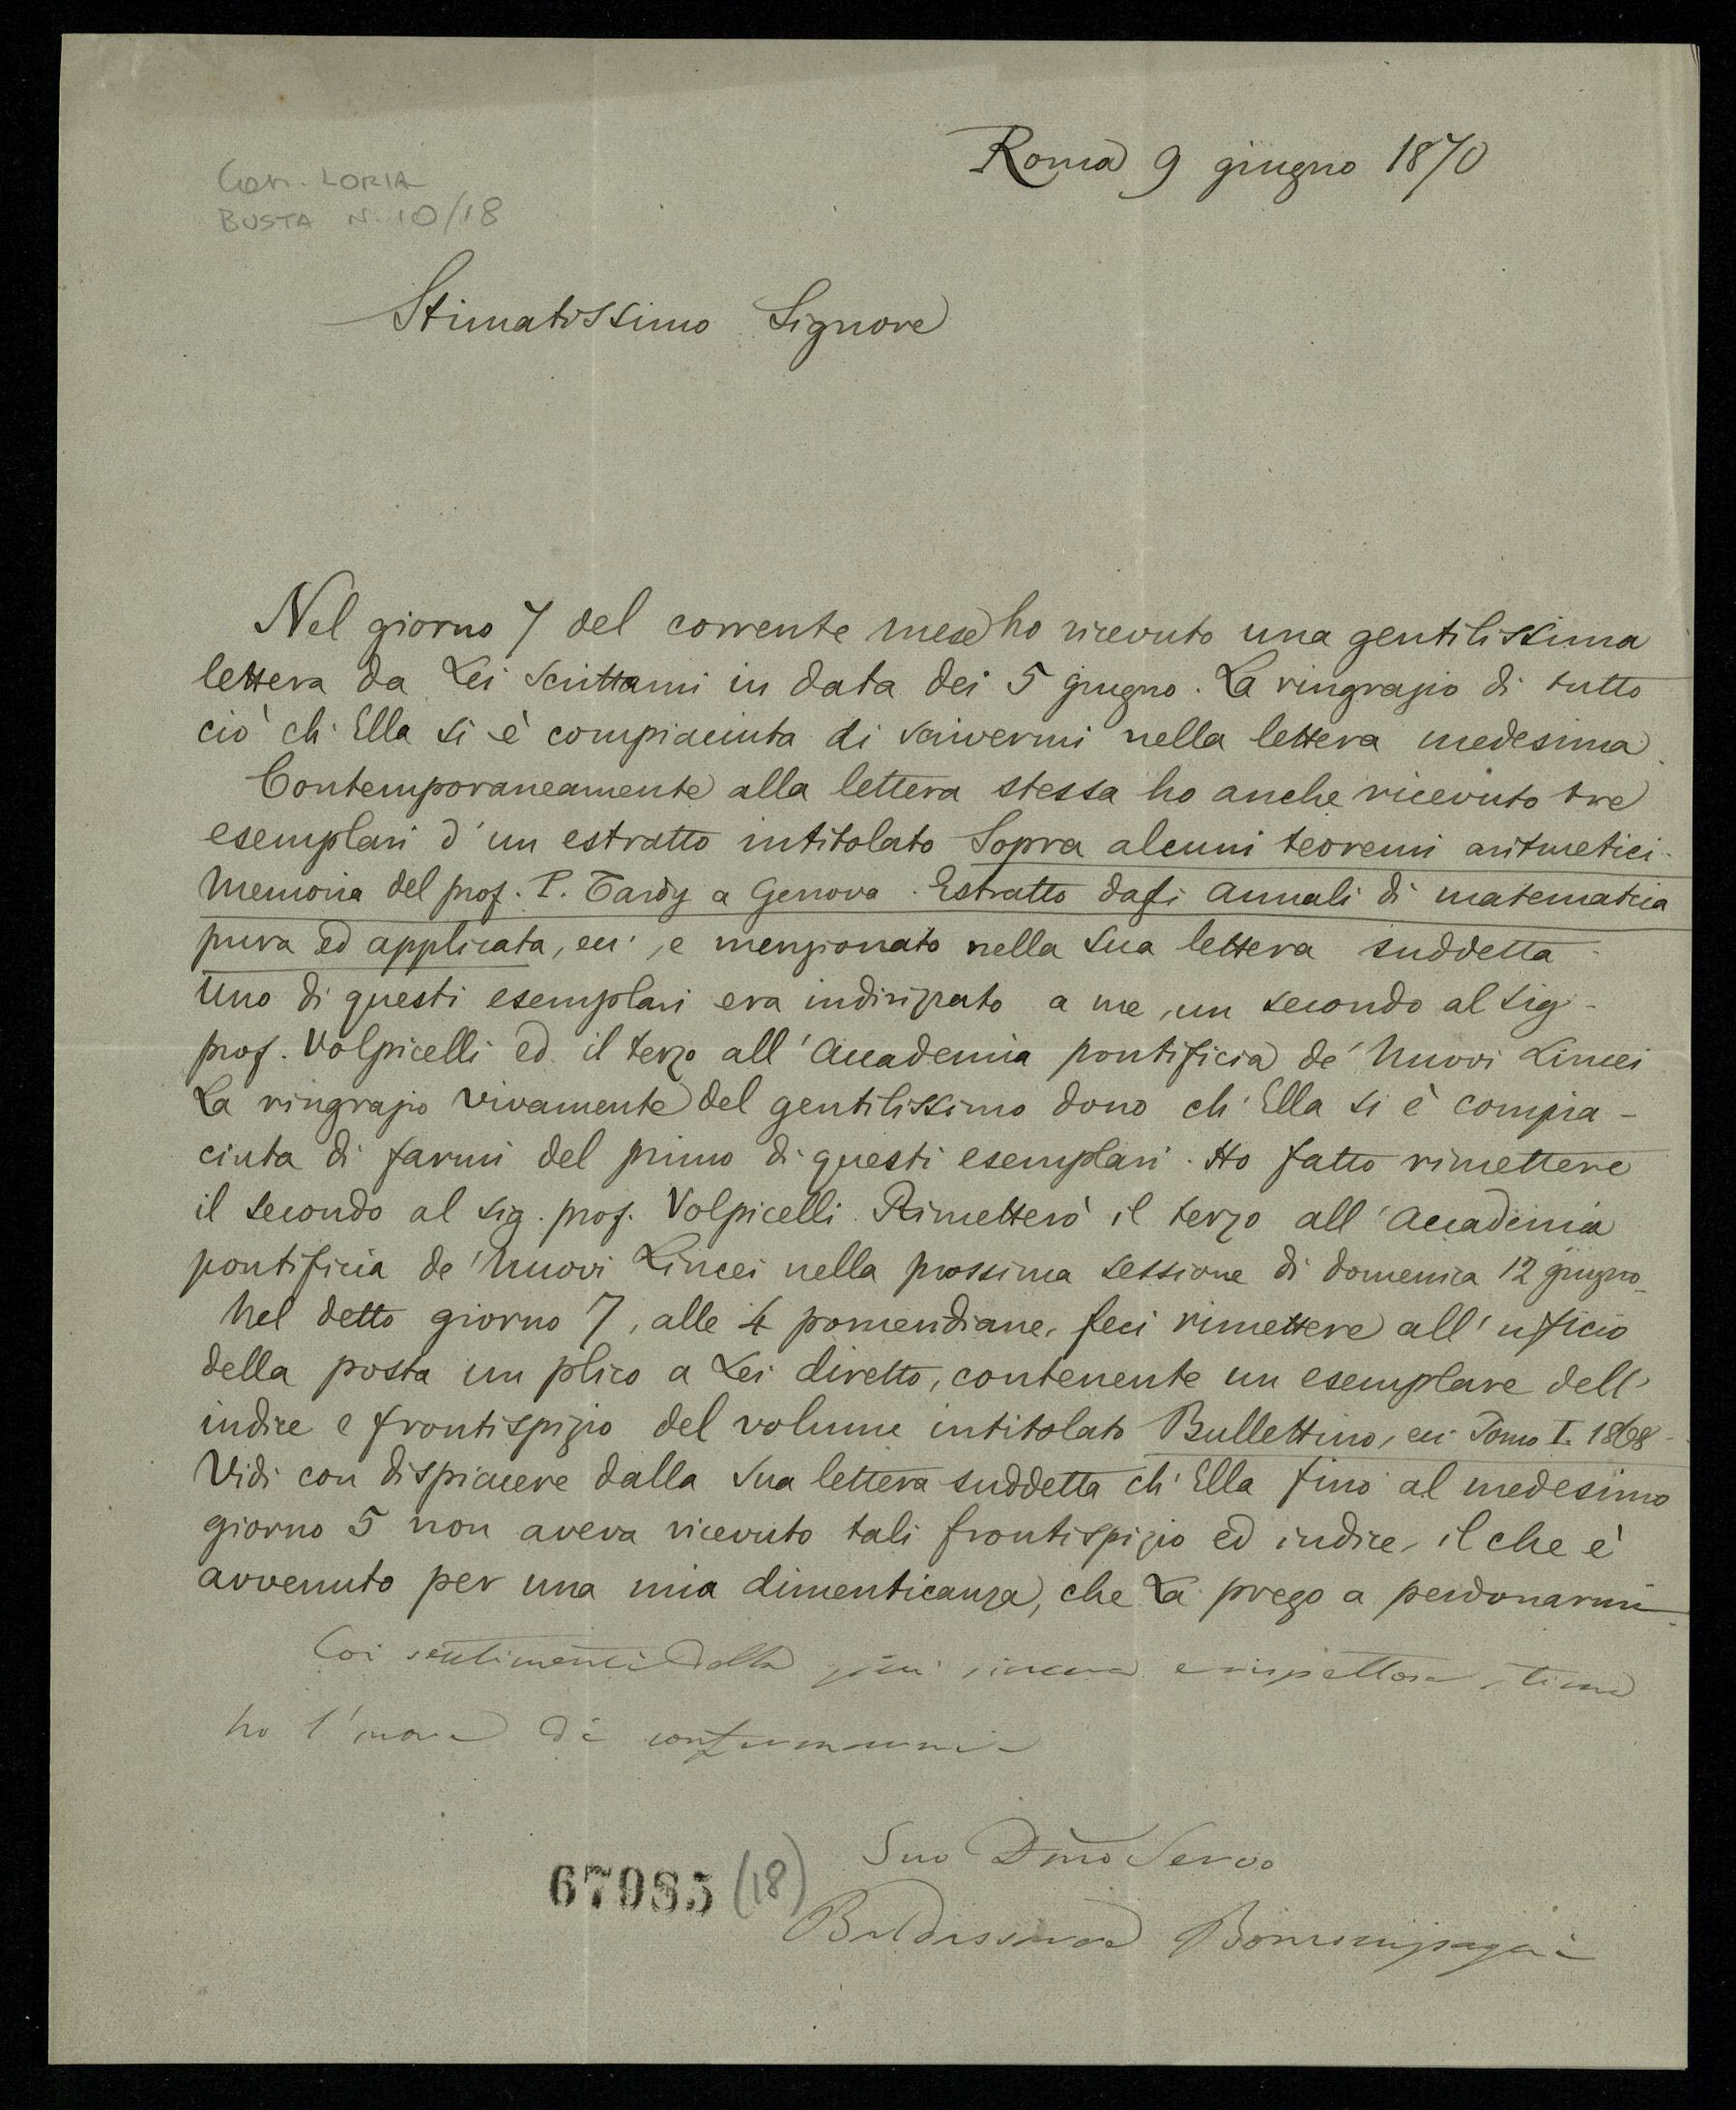 Roma 9 giugno 1870
Gen. LORIA
BUSTA N. 10/18
Stimatissimo Signore
Nel giorno 7 del corrente mese ho ricevuto una gentilissima
lettera da Lei scrittami in data dei 5 giugno. La ringrazio di tutto
ciò ch'Ella si è compiaciuta di scrivermi nella lettera medesima.
Contemporaneamente alla lettera stessa ho anche ricevuto tre
esemplari d'un estratto intitolato Sopra alcuni teoremi aritmetici.
Memoria del prof. P. Tardy a Genova. Estratto dagli Annali di matematica
pura ed applicata, ecc., e menzionato nella Sua lettera suddetta.
Uno di questi esemplari era indirizzato a me, un secondo al sig.
prof. Volpicelli ed il terzo all'Accademia pontificia de' Nuovi Lincei
La ringrazio vivamente del gentilissimo dono ch'Ella si è compia-
ciuta di farmi del primo di questi esemplari. Ho fatto rimettere
il secondo al sig. prof. Volpicelli. Rimetterò il terzo all'Accademia
pontificia de' Nuovi Lincei nella prossima sessione di domenica 12 giugno.
Nel detto giorno 7, alle 4 pomeridiane, feci rimettere all'uficio
della posta un plico a Lei diretto, contenente un esemplare dell'
indice e frontispizio del volume intitolato Bullettino, ecc. Tomo I. 1868.
Vidi con dispiacere dalla Sua lettera suddetta ch'Ella fino al medesimo
giorno 5 non aveva ricevuto tali frontispizio ed indice, il che è
avvenuto per una mia dimenticanza, che La prego a perdonarmi.
Coi sentimenti della più sincera e rispettosa stima
ho l'onore di confermarmi
Suo Dmo Servo
67985 (18)
Baldassarre Boncompagni